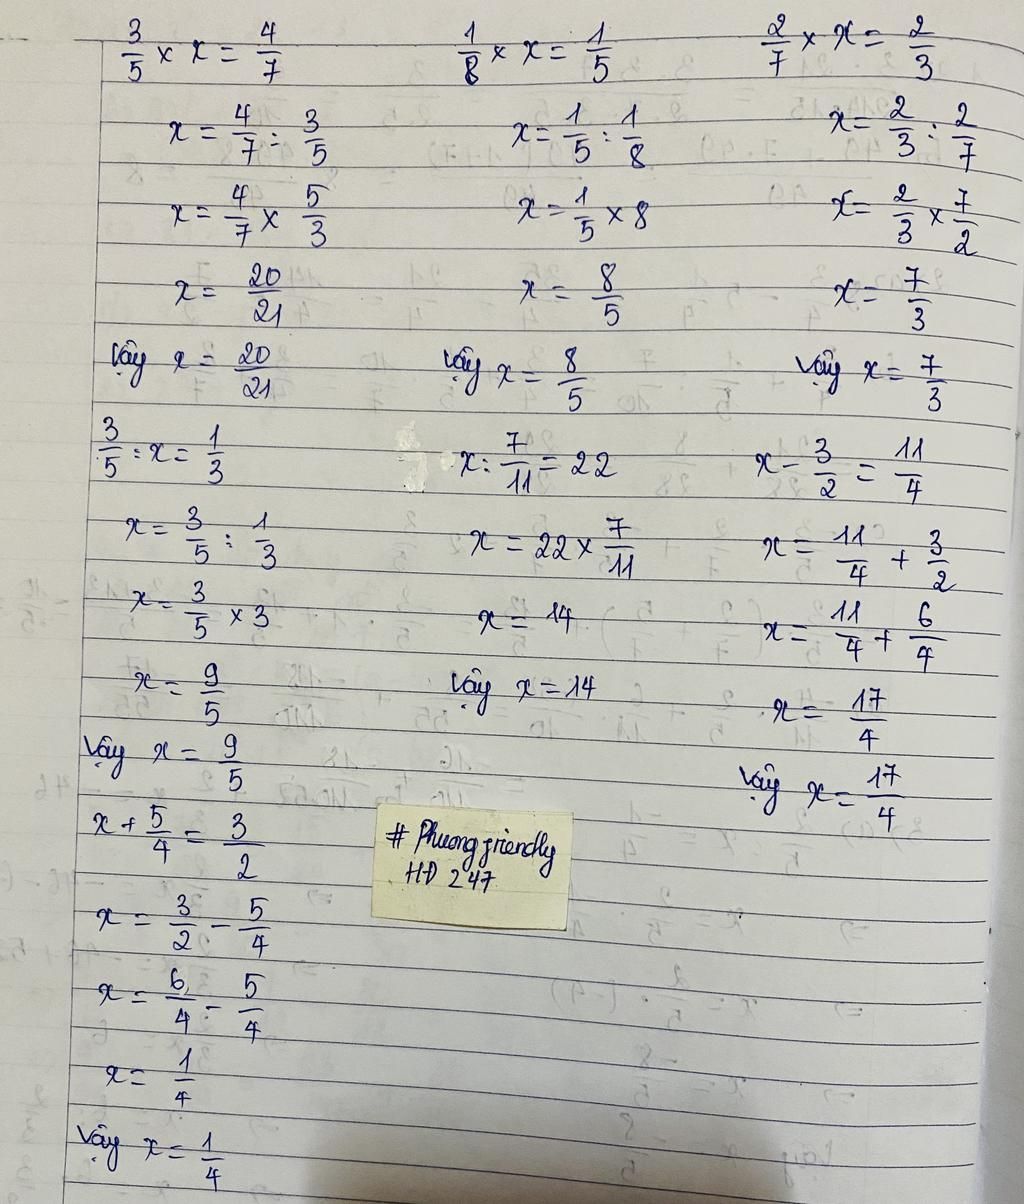 3/5 × x = 4/7
x = 4/7 : 3/5
x = 4/7 × 5/3
x = 20/21
Vậy x = 20/21
1/8 × x = 1/5
x = 1/5 : 1/8
x = 1/5 × 8
x = 8/5
Vậy x = 8/5
2/7 × x = 2/3
x = 2/3 : 2/7
x = 2/3 × 7/2
x = 7/3
Vậy x = 7/3
3/5 : x = 1/3
x = 3/5 : 1/3
x = 3/5 × 3
x = 9/5
Vậy x = 9/5
x : 7/11 = 22
x = 22 × 7/11
x = 14
Vậy x = 14
x - 3/2 = 11/4
x = 11/4 + 3/2
x = 11/4 + 6/4
x = 17/4
Vậy x = 17/4
x + 5/4 = 3/2
x = 3/2 - 5/4
x = 6/4 - 5/4
x = 1/4
Vậy x = 1/4
# Phuongfriendly
HĐ 247